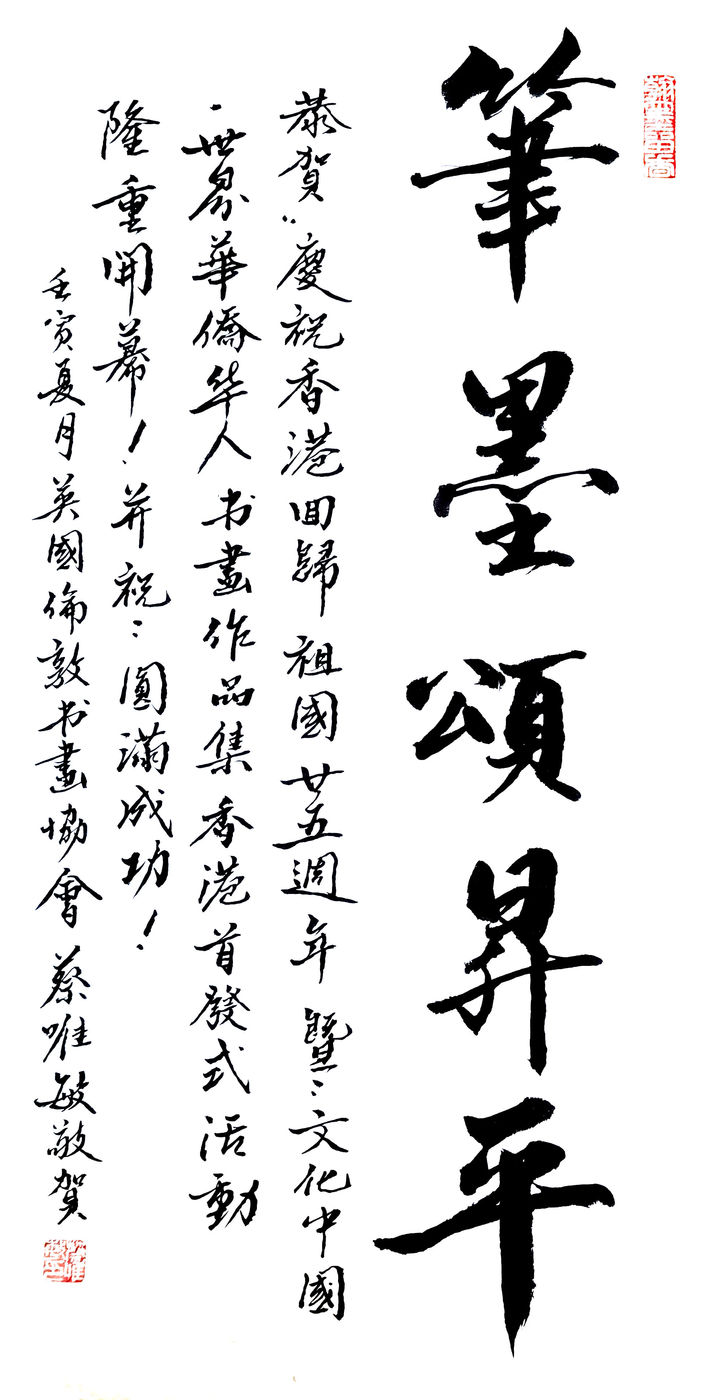 筆墨頌昇平
恭賀“慶祝香港回歸祖國廿五週年暨:文化中國
·世界華僑华人书畫作品集香港首發式活動
隆重開幕！并祝:圓滿成功！
壬寅夏月英國倫敦书畫協會蔡唯敏敬賀